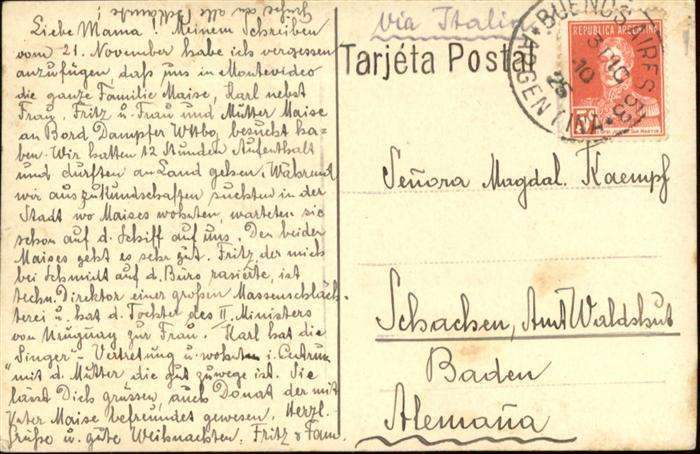 Grüße an alle Bekannte!
Liebe Mama! Meinem Schreiben
vom 21. November habe ich vergessen
anzufügen, daß uns in Montevideo
die ganze Familie Maise, Karl nebst
Frau, Fritz u. Frau und Mutter Maise
an Bord Dampfer Wttbg. besucht ha-
ben. Wir hatten 12 Stunden Aufenthalt
und durften an Land gehen. Während
wir auszukundschaften suchten in der
Stadt wo Maises wohnten, warteten sie
schon auf d. Schiff auf uns. Den beiden
Maises geht es sehr gut. Fritz, der mich
bei Schmidt auf d. Büro rasierte, ist
techn. Direktor einer großen Massenschläch-
terei u. hat d. Tochter des II. Ministers
von Uruguay zur Frau. Karl hat die
"Singer"-Vertretung u. wohnt i. Centrum
mit d. Mutter die gut zuwege ist. Sie
lässt Dich grüssen, auch Donat der mit
Vater Maise befreundet gewesen. Herzl.
Grüße u. gute Weihnachten. Fritz u Fam.
via Italia
Tarjéta Postal
BUENOS AIRES
ARGENTINA
REPUBLICA ARGENTINA
5c
Señora Magdal. Kaempf
Schachen, Amt Waldshut
Baden
Alemaña